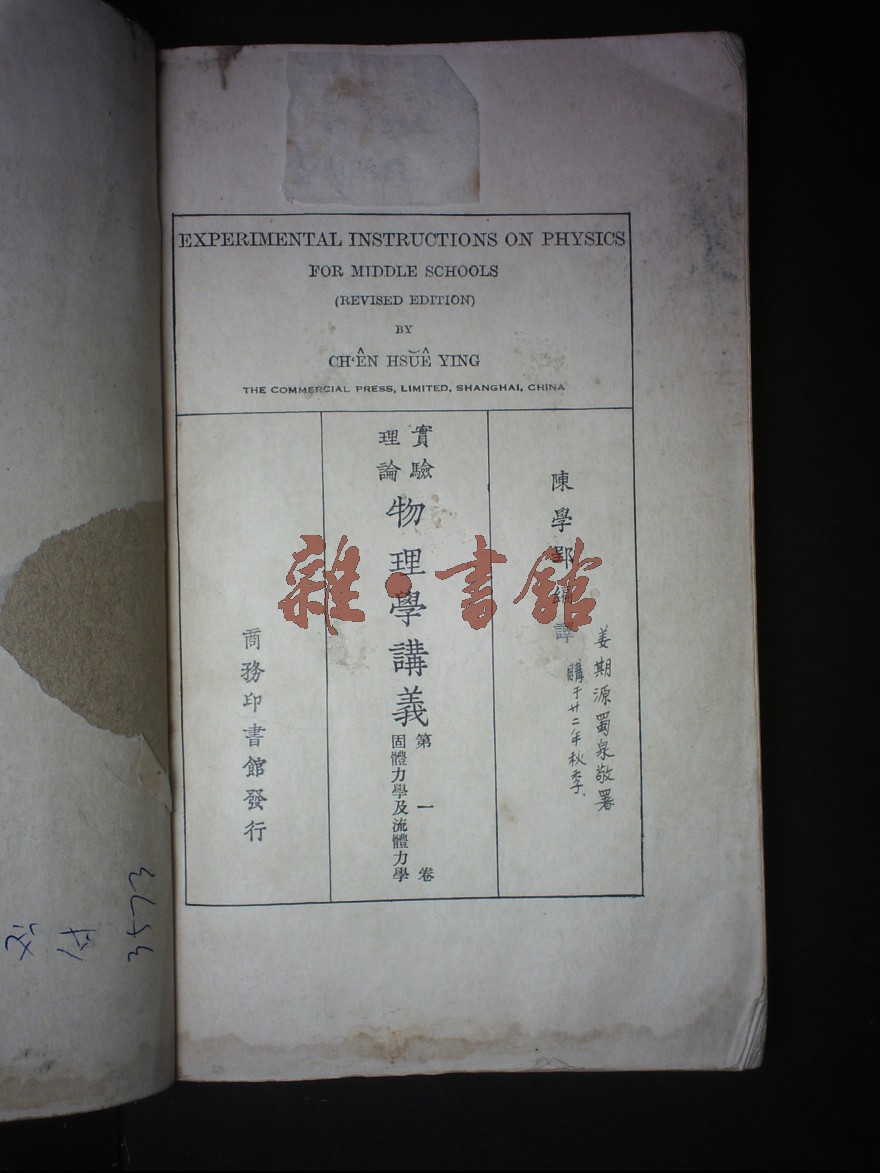 EXPERIMENTAL INSTRUCTIONS ON PHYSICS
FOR MIDDLE SCHOOLS
(REVISED EDITION)
BY
CH‘ÊN HSŬÊ YING
THE COMMERCIAL PRESS, LIMITED, SHANGHAI, CHINA
陳學郢編譯
姜期源蜀泉敬署
購于廿二年秋季.
實驗
理論
物理學講義
第一卷
固體力學及流體力學
商務印書館發行
雜·書館
3573